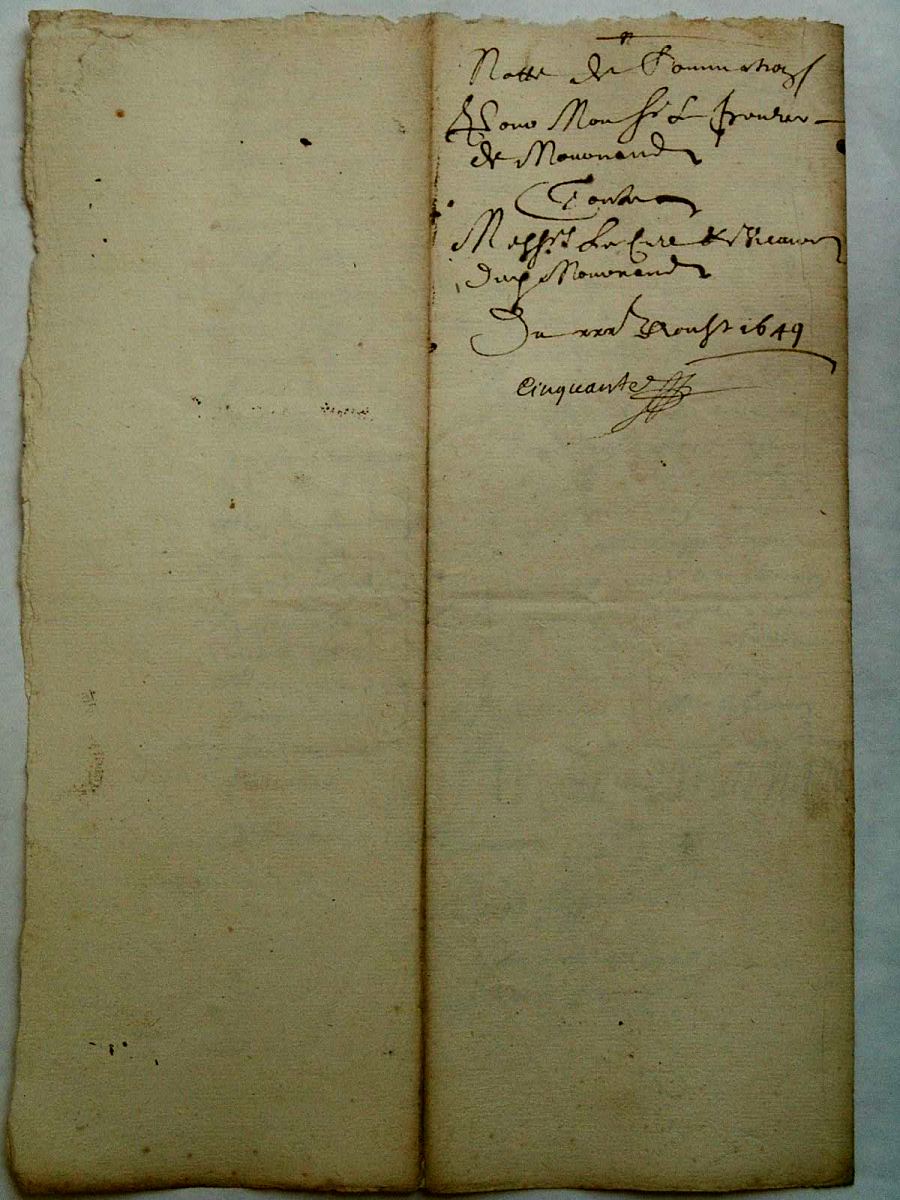 Notte de sommation
Pour Mons.r Le prieur
de Mournand
Contre
Mess.rs Le Curé & Vicaire
dud Mournand
Du xxx Aoust 1649
Cinquante